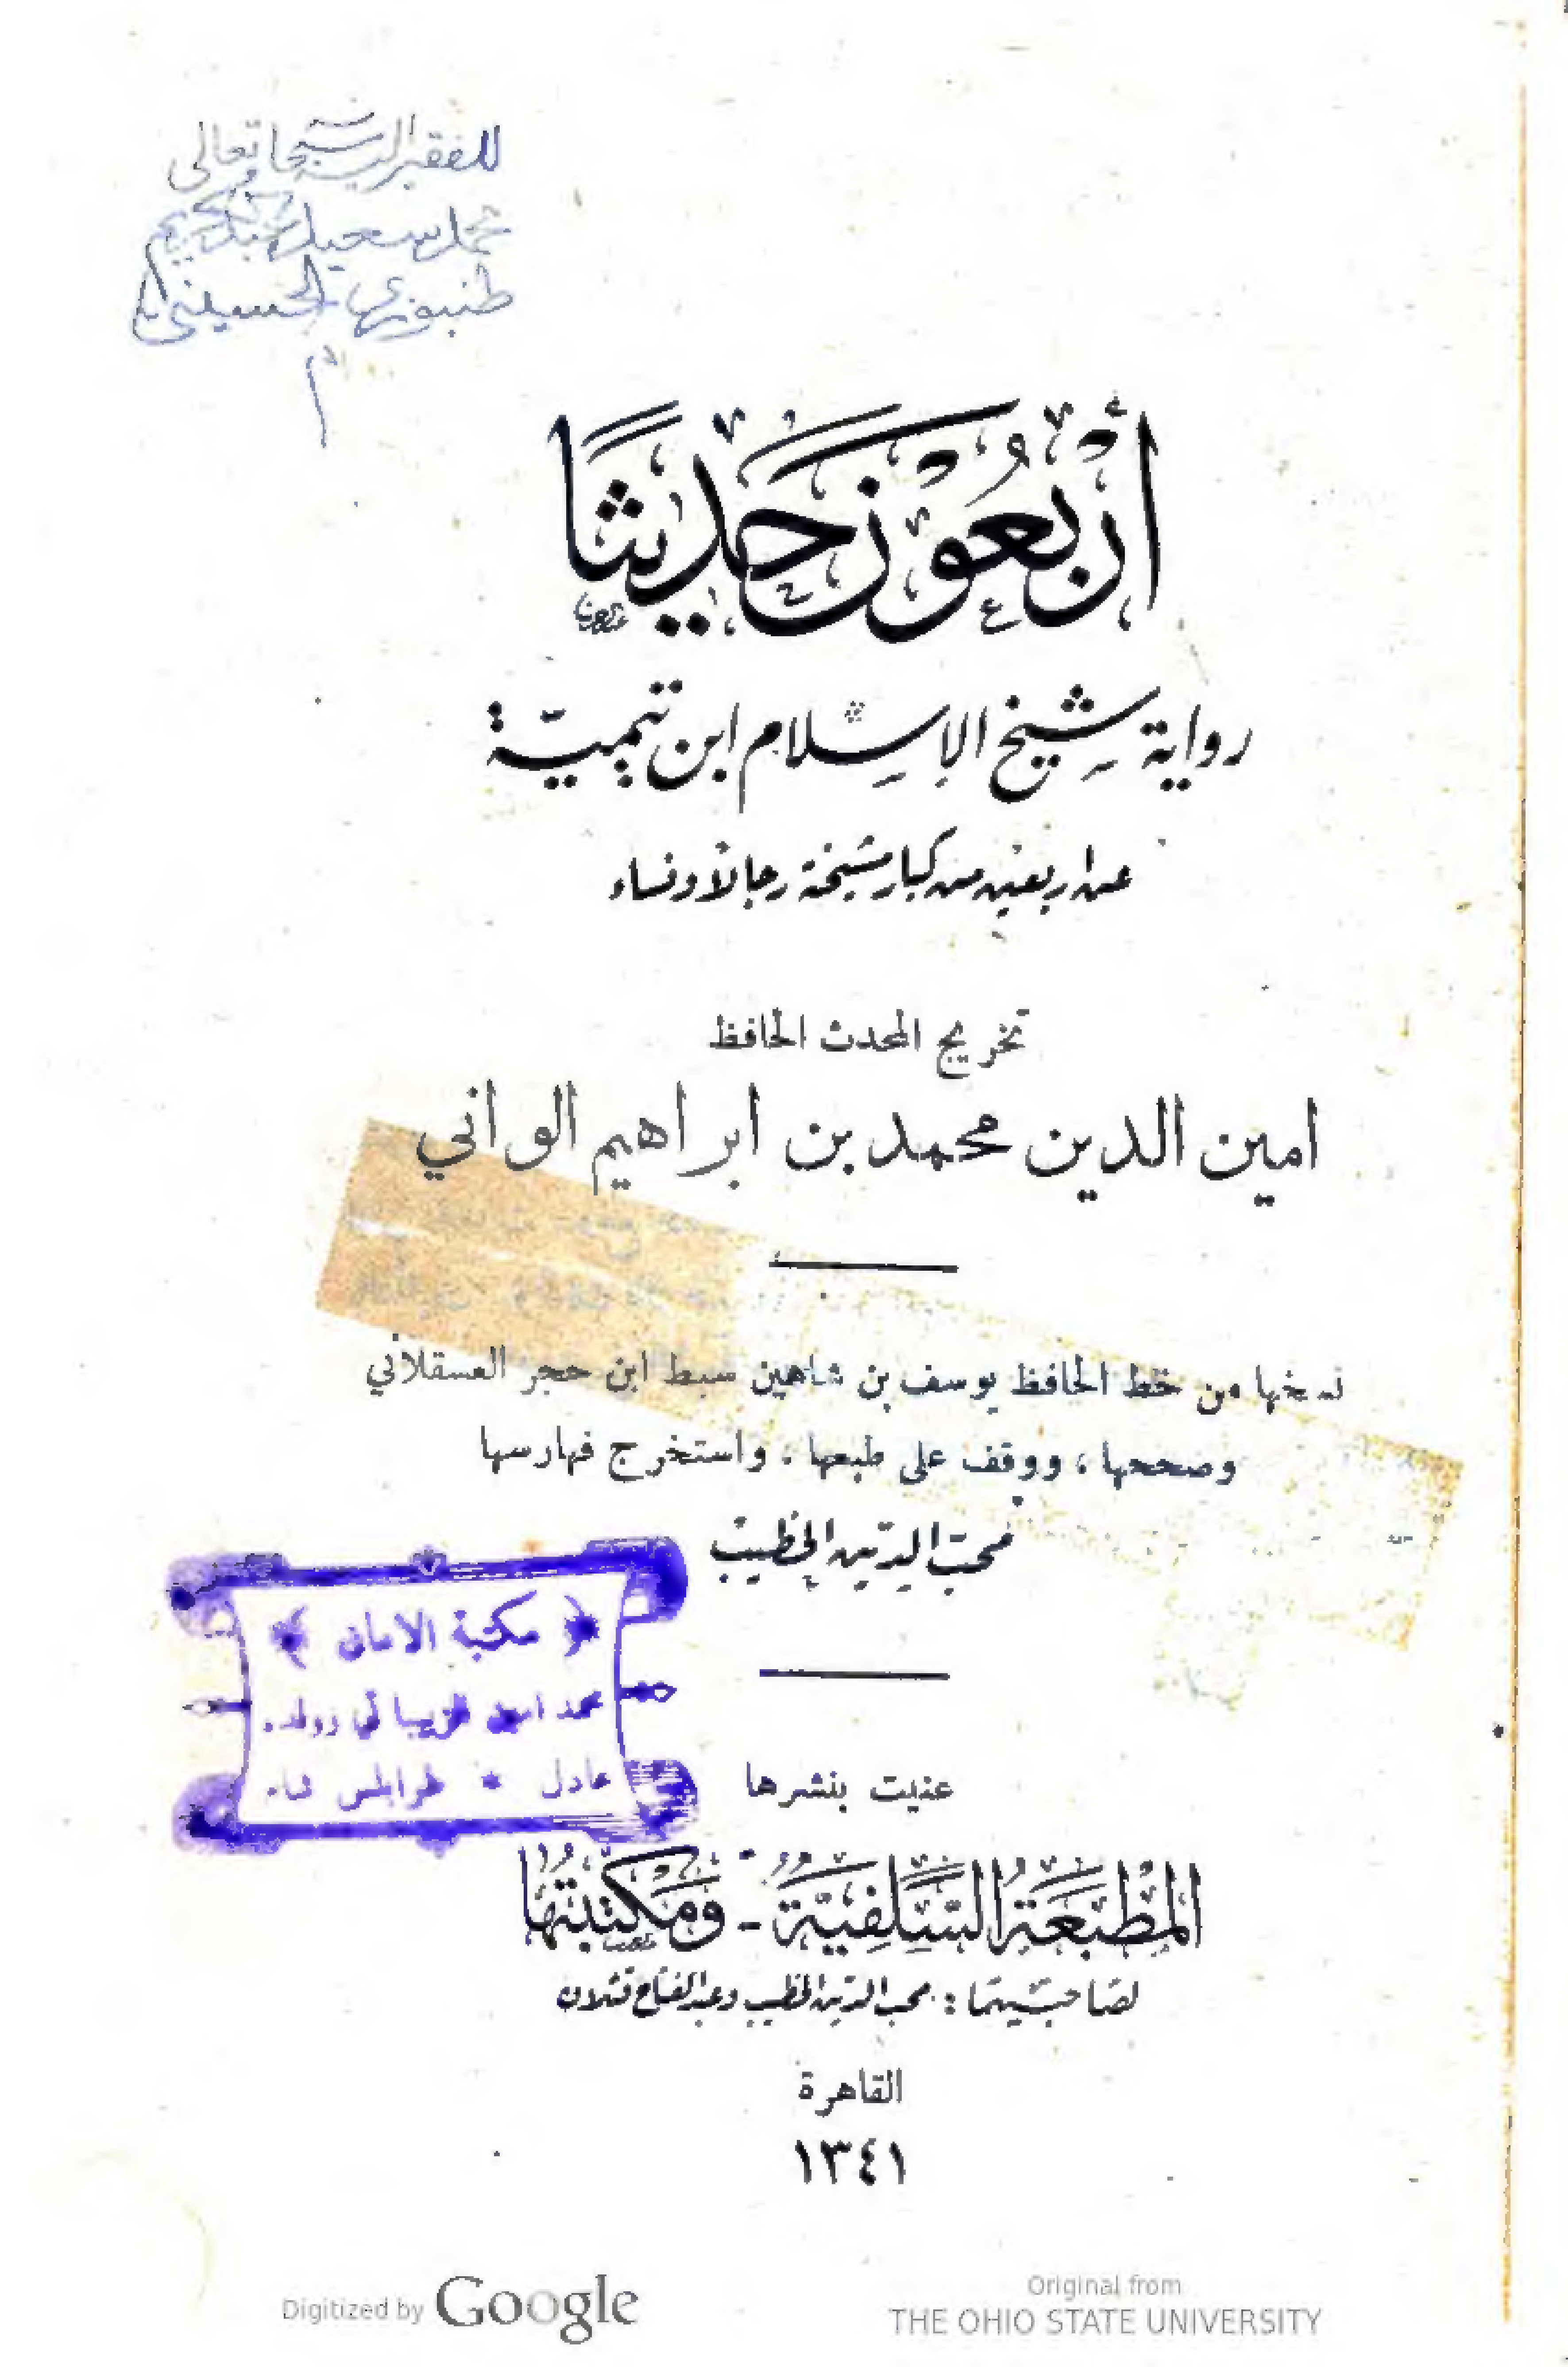 للفقير اليه سبحانه وتعالى
محمد سعيد
طنبوزه الحسيني
أربعون حديثا
رواية شيخ الإسلام ابن تيمية
عن اربعين من كبار مشيخة رجالا ونساء
تخريج المحدث الحافظ
امين الدين محمد بن ابراهيم الواني
نسخها من خط الحافظ يوسف بن شاهين سبط ابن حجر العسقلاني
وصححها ، ووقف على طبعها ، واستخرج فهارسها
محب الدين الخطيب
مكتبة الامان
محمد امين
عادل * طرابلس شام
عنيت بنشرها
المَطْبَعَةُ السَّلَفِيَّةُ - وَمَكْتَبَتُهَا
لصاحبيهما : محب الدين الخطيب وعبد الفتاح قتلان
القاهرة
١٣٤١
Digitized by Google
Original from
THE OHIO STATE UNIVERSITY